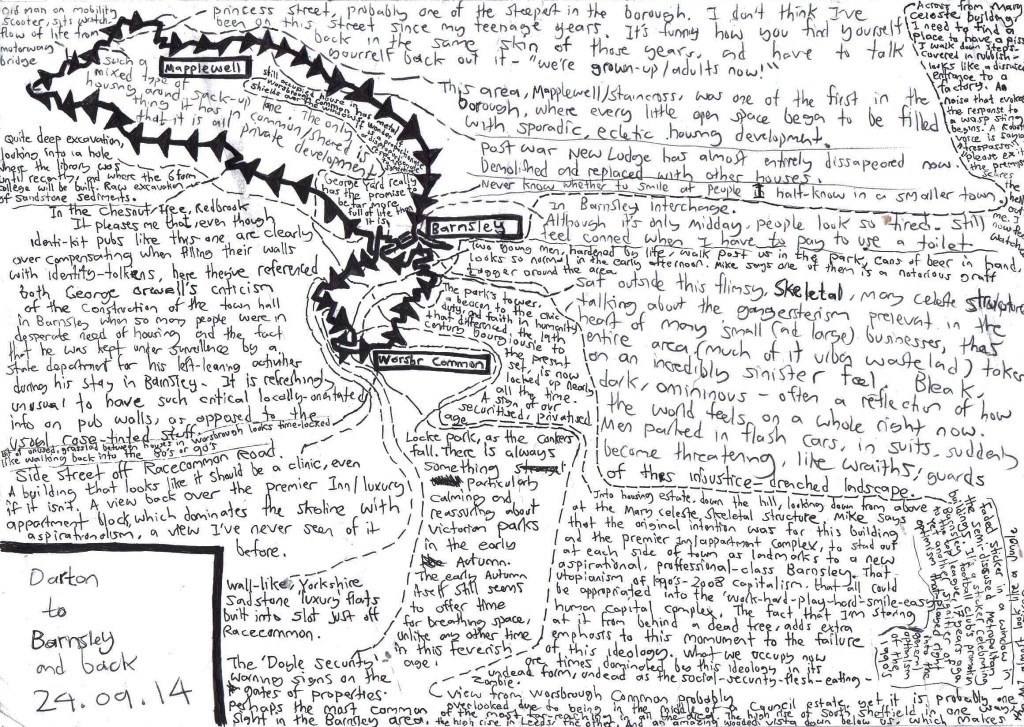 Old man on mobility
scooter, sits watch-
flow of life from
motorway
bridge
princess street, probably one of the steepest in the borough. I don't think I've
been on this street since my teenage years. It's funny how you find yourself
back in the same skin of those years, and have to talk
yourself back out it - "we're grown-up/adults now!"
Across from Mary
celeste building,
I need to find a
place to have a piss
I walk down steps
covered in rubbish-
looks like a disused
entrance to a
factory. An
noise that evokes
the response to
a wasp sting
begins. A Robot
voice is saying
trespassing
Please exit
the premises
scares
the hell
out
me.
Mapplewell
such a
mixed type of
housing around
thing it has
that it is all
still occupied house in
Worsbrough
The only
common/shared
private
development
This area, Mapplewell/Staincross, was one of the first in the
borough, where every little open space began to be filled
with sporadic, ecletic housing development.
Post war New Lodge has almost entirely dissapeared now.
Demolished and replaced with other houses.
Never know whether to smile at people I half-know in a smaller town.
Quite deep excavation,
looking into a hole
where the library was
until recently, and where the 6form
college will be built. Raw excavation
of sandstone sediments.
George Yard really
has the promise
be far more
full of life than
it is
Barnsley
In Barnsley Interchange.
Although it's only midday, people look so tired. Still
feel conned when I have to pay to use a toilet
Two young men, hardened by life, walk past us in the park, cans of beer in hand,
Looks so normal in the early afternoon. Mike says one of them is a notorious graff
tagger around the area
In the Chesnut tree, Redbrook
It pleases me that, even though
identi-kit pubs like this one are clearly
over compensating when filling their walls
with identity-tolkens, here they've referenced
both George Orwell's criticism
of the construction of the town hall
in Barnsley when so many people were in
desperate need of housing and the fact
that he was kept under survellience by a
state department for his left-leaning activities
during his stay in Barnsley. It is refreshingly
unusual to have such critical locally-orientated
info on pub walls, as opposed to the
usual rose-tinted stuff.
Bit of unused, grassland between houses in Worsbrough looks time-locked
like walking back into the 80's or 90's
The park's tower,
a beacon to the civic
duty and faith in humanity
that differenced the 19th
century bourgiousie to
the present
set, is now
locked up nearly
all the time.
A sign of our
securitised, privatised
age
sat outside this flimsy, Skeletal, mary celeste structure
talking about the gangersterism prelevent in the
heart of many small (and large) businesses, that
entire area (much of it urban wasteland) takes
on an incredibly sinister feel. Bleak,
dark, omininous - often a reflection of how
the world feels on a whole right now.
Men parked in flash cars, in suits, suddenly
become threatening, like wraiths, guards
of this injustice-drenched landscape.
Worsbr Common
Side street off Racecommon Road.
A building that looks like it should be a clinic, even
if it isn't. A view back over the premier Inn/luxury
appartment block, which dominates the skyline with
aspirationalism, a view I've never seen of it
before.
Locke park, as the conkers
fall. There is always
something
particularly
calming and
reassuring about
victorian parks
in the early
Autumn.
The early Autumn
itself still seems
to offer time
for breathing space,
unlike any other time
in this feverish
age.
Into housing estate, down the hill, looking down from above
at the Mary celeste, skeletal structure, Mike says
that the original intention was for this building
and the premier Inn/appartment complex, to stand out
at each side of town as landmarks to a new
aspirational, professional-class Barnsley. That
utopianism of 1990's-2008 capitalism, that all could
be appropriated into the 'work-hard-play-hard-smile-easy'
human capital complex. The fact that I'm staring
at it from behind a dead tree, adds extra
emphosis to this momument to the failure
of this ideology. What we occupy now
are times dominated by this ideology in its
undead form, undead as the social-security-flesh-eating-
zombie.
faded sticker in a window in
the semi-disused Metropolitan
buildings. It's a sticker celebrating
Barnsley football club's promotion
to the top league, 17 years ago.
optimism
1990s
wall-like, Yorkshire
sandstone luxury flats
built into slot just off
Racecommon.
The 'Doble security'
warning signs on the
gates of properties.
Perhaps the most common
sight in the Barnsley area.
View from Worsbrough Common probably
overlooked due to being in the middle of a council estate, yet it is probably one
of the most
Darton
to
Barnsley
and back
24.09.14